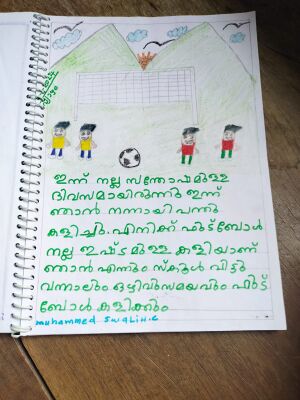 ഇന്ന് നല്ല സന്തോഷമുള്ള
ദിവസമായിരുന്നു ഇന്ന്
ഞാൻ നന്നായി പന്തു
കളിച്ചു. എനിക്ക് ഫുട്ബോൾ
നല്ല ഇഷ്ടമുള്ള കളിയാണ്
ഞാൻ എന്നും സ്കൂൾ വിട്ടു
വന്നാലും ഒഴിവുസമയവും ഫുട്
ബോൾ കളിക്കും
muhammed Swalih.c